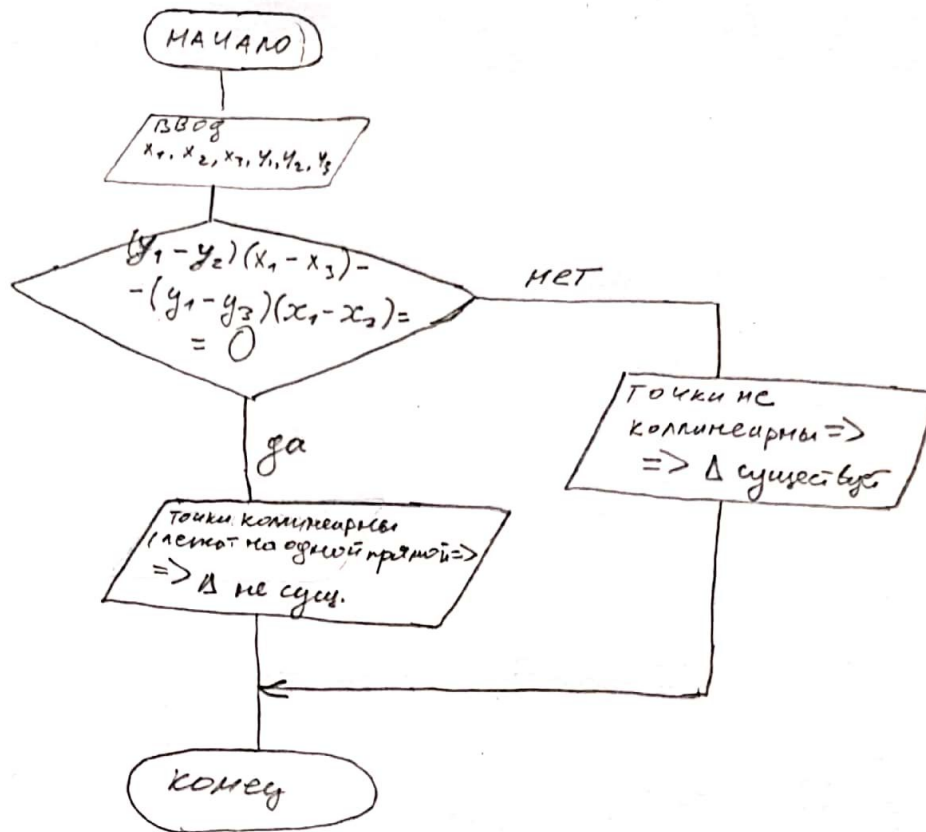 НАЧАЛО
ввод
x₁, x₂, x₃, y₁, y₂, y₃
(y₁ - y₂)(x₁ - x₃) -
- (y₁ - y₃)(x₁ - x₂) =
= 0
нет
да
точки не
коллинеарны =>
=> Δ существует
точки коллинеарны
(лежат на одной прямой =>
=> Δ не сущ.
конец